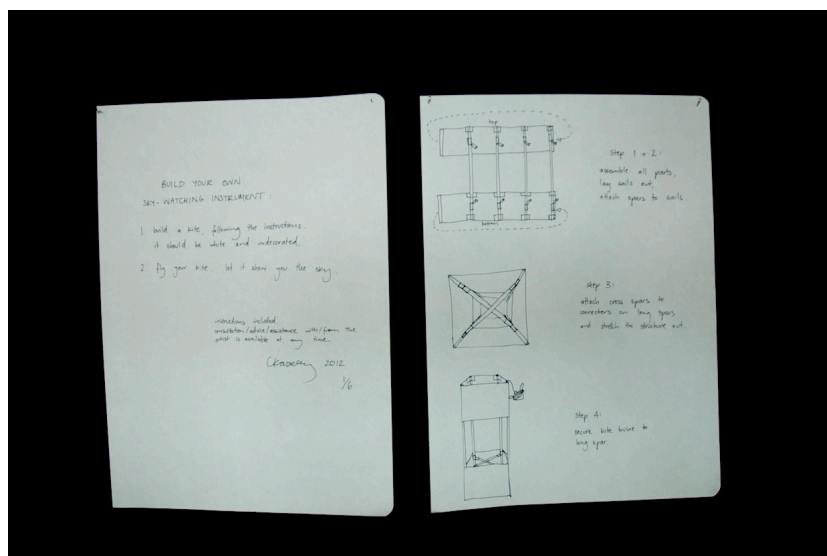 BUILD YOUR OWN
SKY-WATCHING INSTRUMENT:
1. build a kite, following the instructions.
it should be white and undecorated.
2. fly your kite. let it show you the sky.
instructions included.
consultation/advice/assistance with/from the
artist is available at any time.
2012
1/6
top
bottom
Step 1 + 2:
assemble all parts,
lay sails out,
attach spars to sails
Step 3:
attach cross spars to
connectors on long spars
and stretch the structure out.
Step 4:
secure kite twine to
long spar.